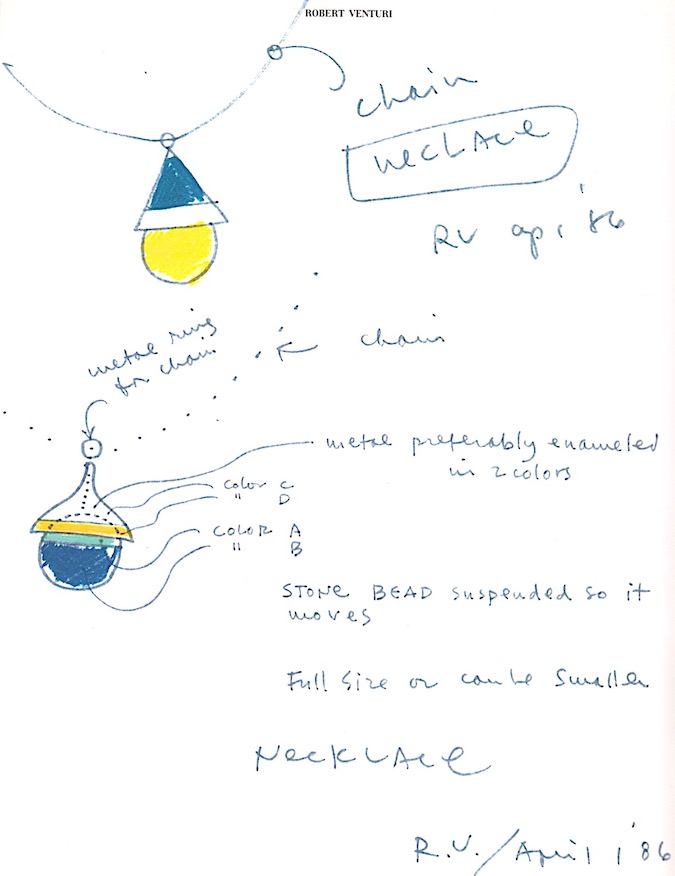 ROBERT VENTURI
chain
NECLACE
RV apr '86
metal ring
for chain
chain
metal preferably enameled
in 2 colors
COLOR C
" D
COLOR A
" B
STONE BEAD suspended so it
moves
Full Size or can be smaller
NECKLACE
R.V./April 1 '86